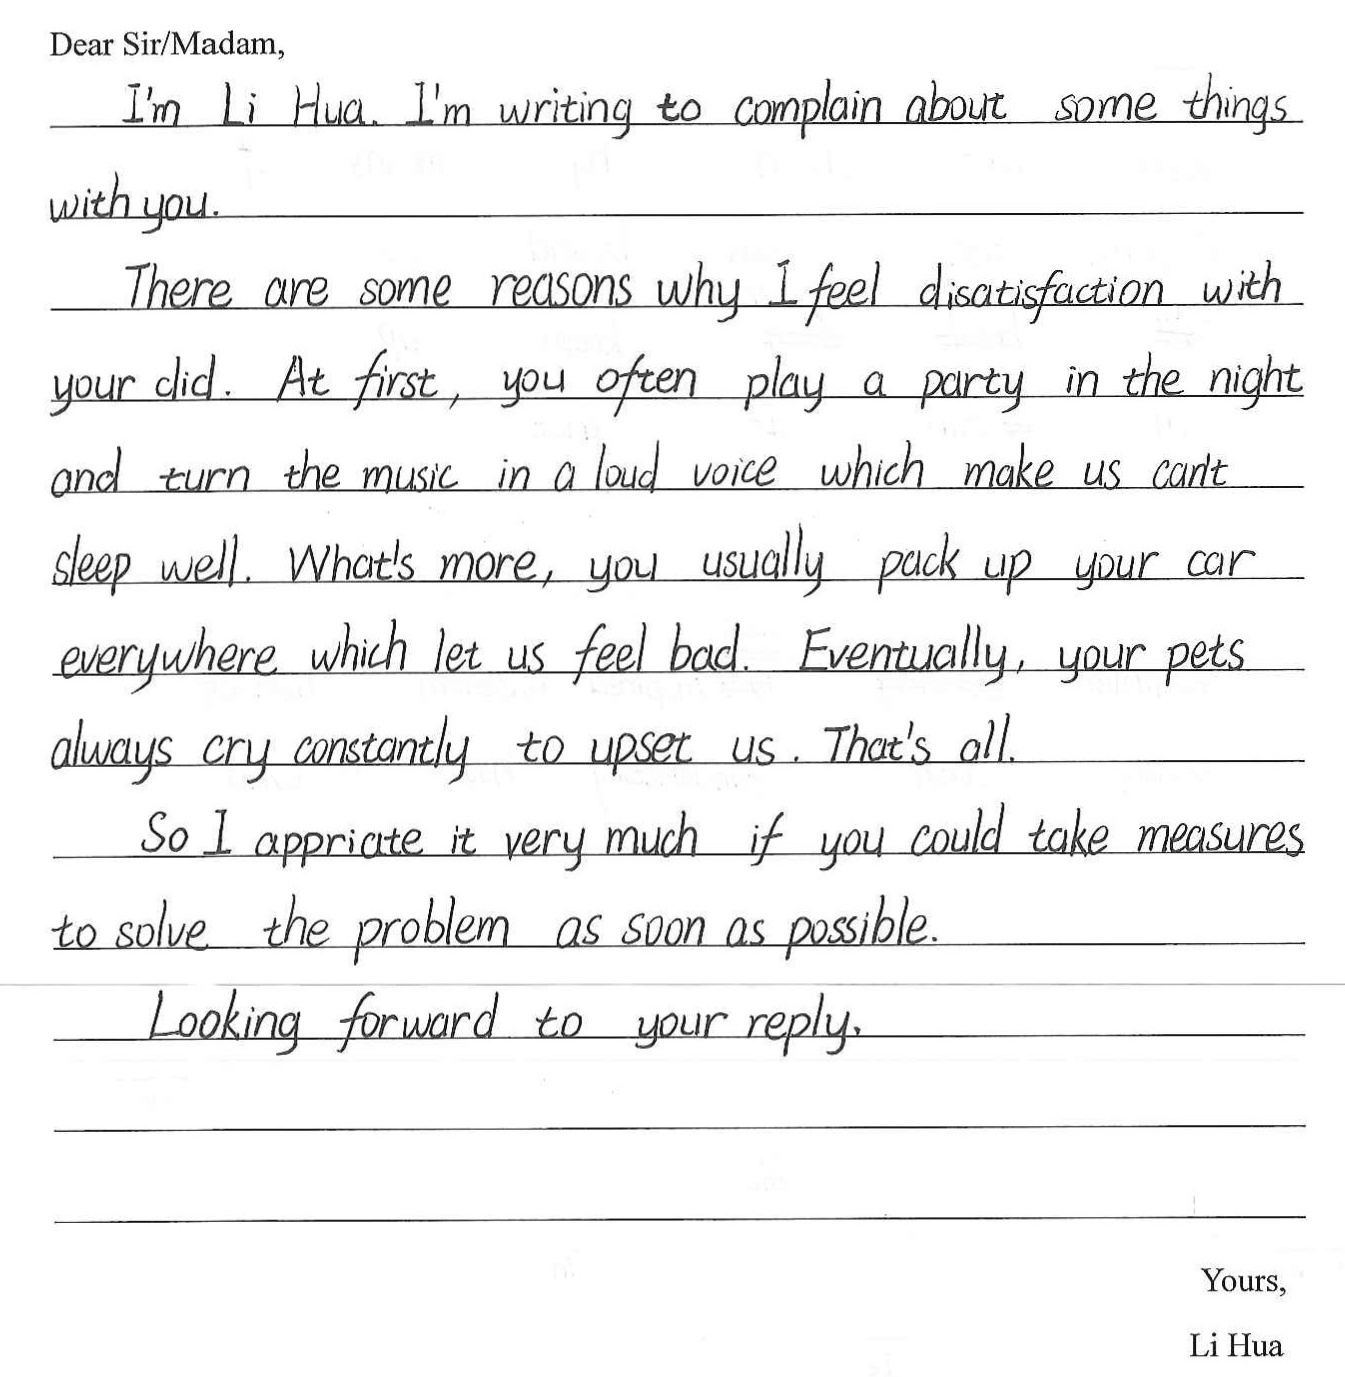 Dear Sir/Madam,
I'm Li Hua. I'm writing to complain about some things
with you.
There are some reasons why I feel disatisfaction with
your did. At first, you often play a party in the night
and turn the music in a loud voice which make us can't
sleep well. What's more, you usually pack up your car
everywhere which let us feel bad. Eventually, your pets
always cry constantly to upset us. That's all.
So I appriate it very much if you could take measures
to solve the problem as soon as possible.
Looking forward to your reply.
Yours,
Li Hua